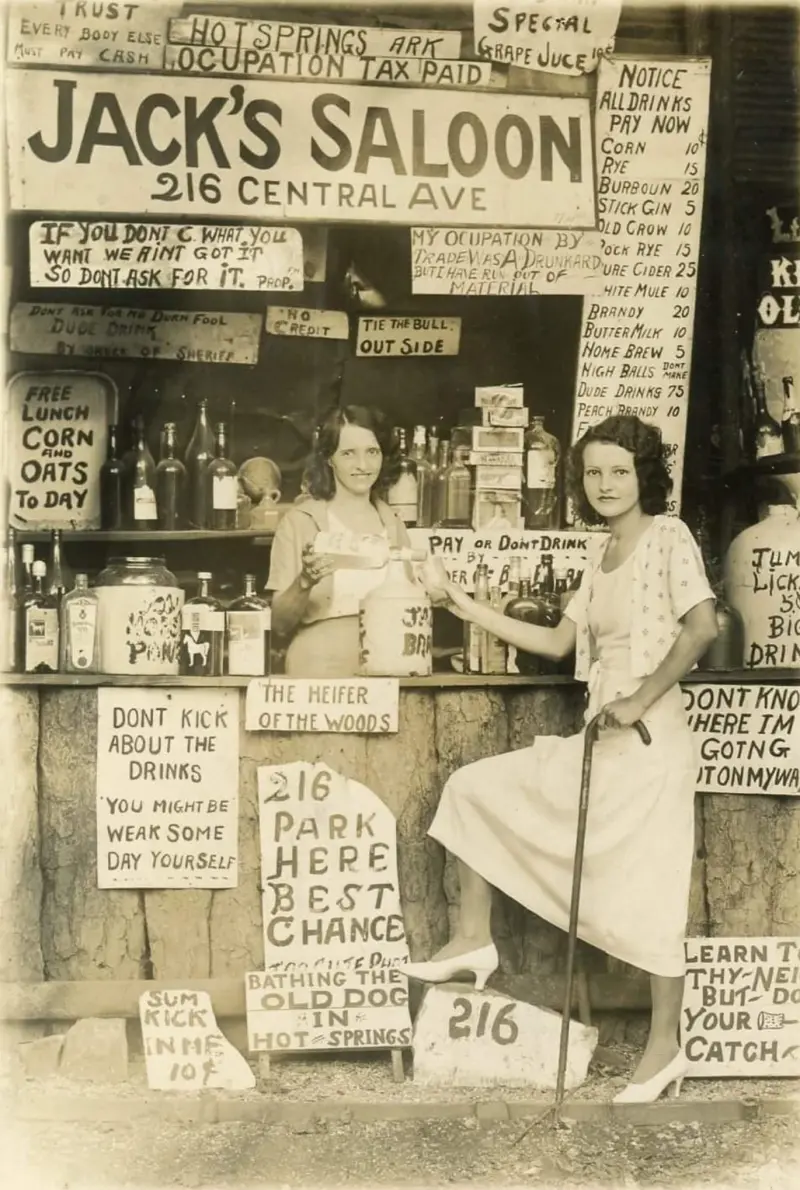 TRUST
EVERY BODY ELSE
MUST PAY CASH
HOT SPRINGS ARK
OCUPATION TAX PAID
SPECIAL
GRAPE JUCE 10¢
JACK'S SALOON
216 CENTRAL AVE
NOTICE
ALL DRINKS
PAY NOW
CORN 10¢
RYE 15
BURBOUN 20
STICK GIN 5
OLD CROW 10
ROCK RYE 15
PURE CIDER 25
WHITE MULE 10
BRANDY 20
BUTTER MILK 10
HOME BREW 5
HIGH BALLS DONT MAKE
DUDE DRINKS 75
PEACH BRANDY 10
IF YOU DONT C. WHAT YOU
WANT WE AINT GOT IT
SO DONT ASK FOR IT. PROP.
MY OCUPATION BY
TRADE WAS A DRUNKARD
BUT I HAVE RUN OUT OF
MATERIAL
DONT ASK FOR NO DURN FOOL
DUDE DRINK
BY ORDER OF SHERIFF
NO
CREDIT
TIE THE BULL
OUT SIDE
FREE
LUNCH
CORN
AND
OATS
TO DAY
PAY OR DONT DRINK
BY
THE HEIFER
OF THE WOODS
DONT KICK
ABOUT THE
DRINKS
YOU MIGHT BE
WEAK SOME
DAY YOURSELF
216
PARK
HERE
BEST
CHANCE
BATHING THE
OLD DOG
IN
HOT SPRINGS
SUM
KICK
IN ME
10¢
216
JUM
LICK
5
BIG
DRIN
DONT KNO
HERE IM
GOTNG
UT ON MY WA
LEARN T
THY-NEI
BUT-DO
YOUR
CATCH